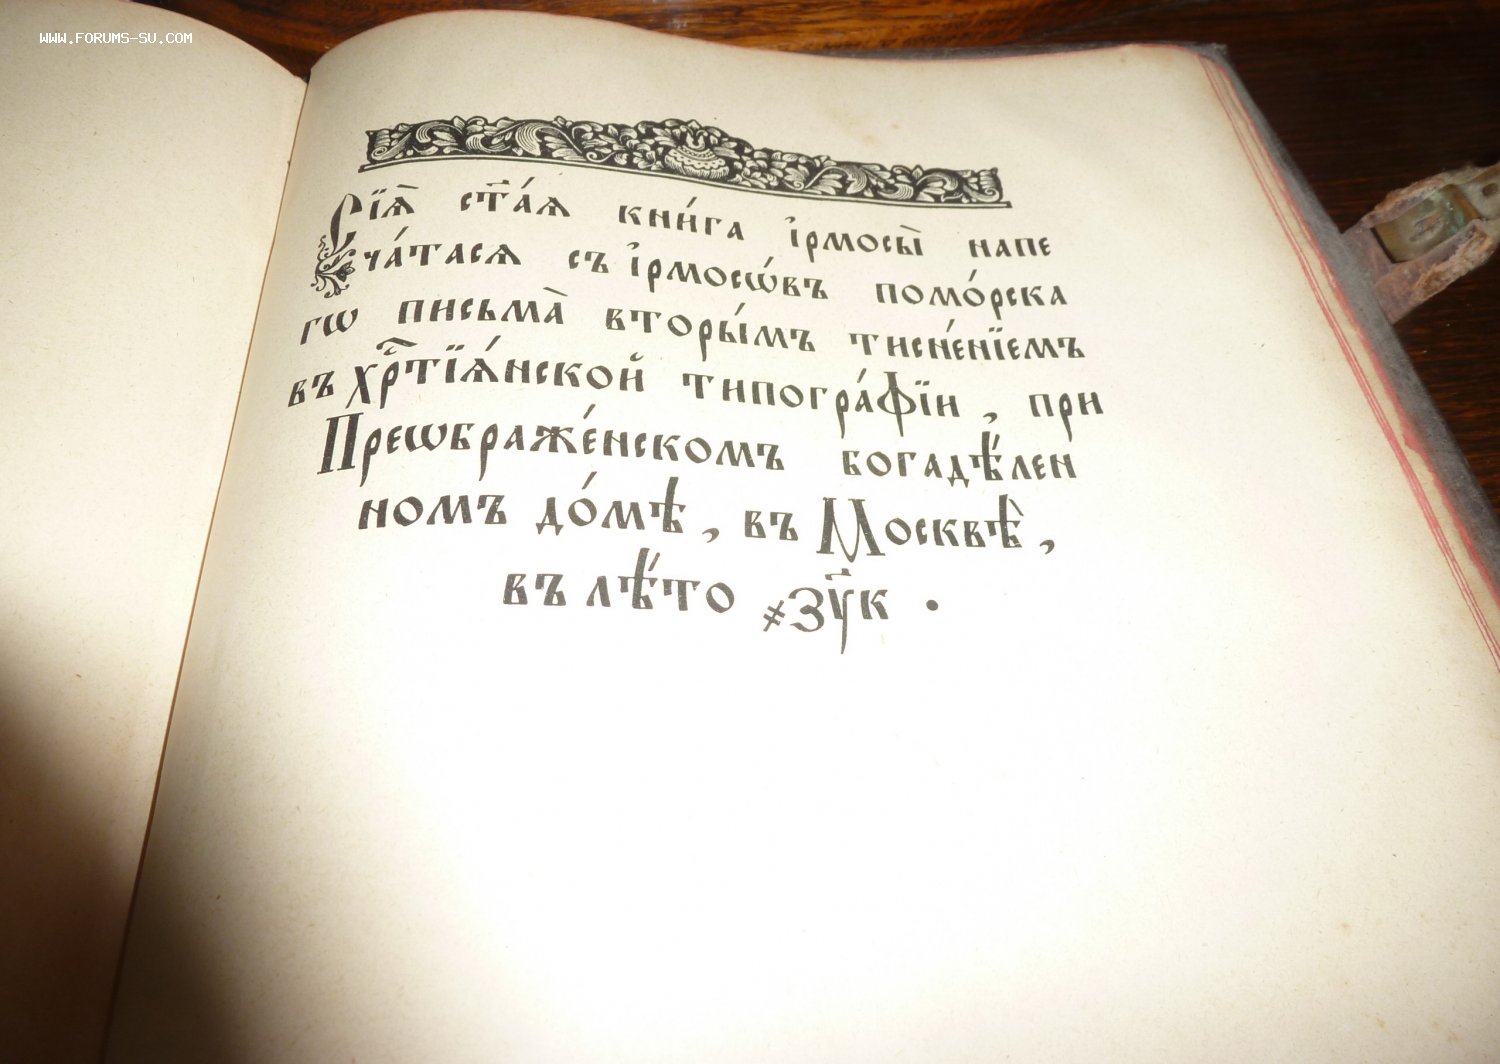 WWW.FORUMS-SU.COM
Сїѧ̀ ст҃а́ѧ кни́га і҆рмосы̀ напе
ча́тасѧ съ і҆рмосѡ́въ помо́рска
гѡ письма̀ вторы́мъ тисне́нїемъ
въ хрⷭ҇тїѧ́нской типогра́фїи, при
Преѡбраже́нскомъ богадѣ́лен
номъ до́мѣ, въ Москвѣ̀,
въ лѣ́то ҂ЗУ҃К .